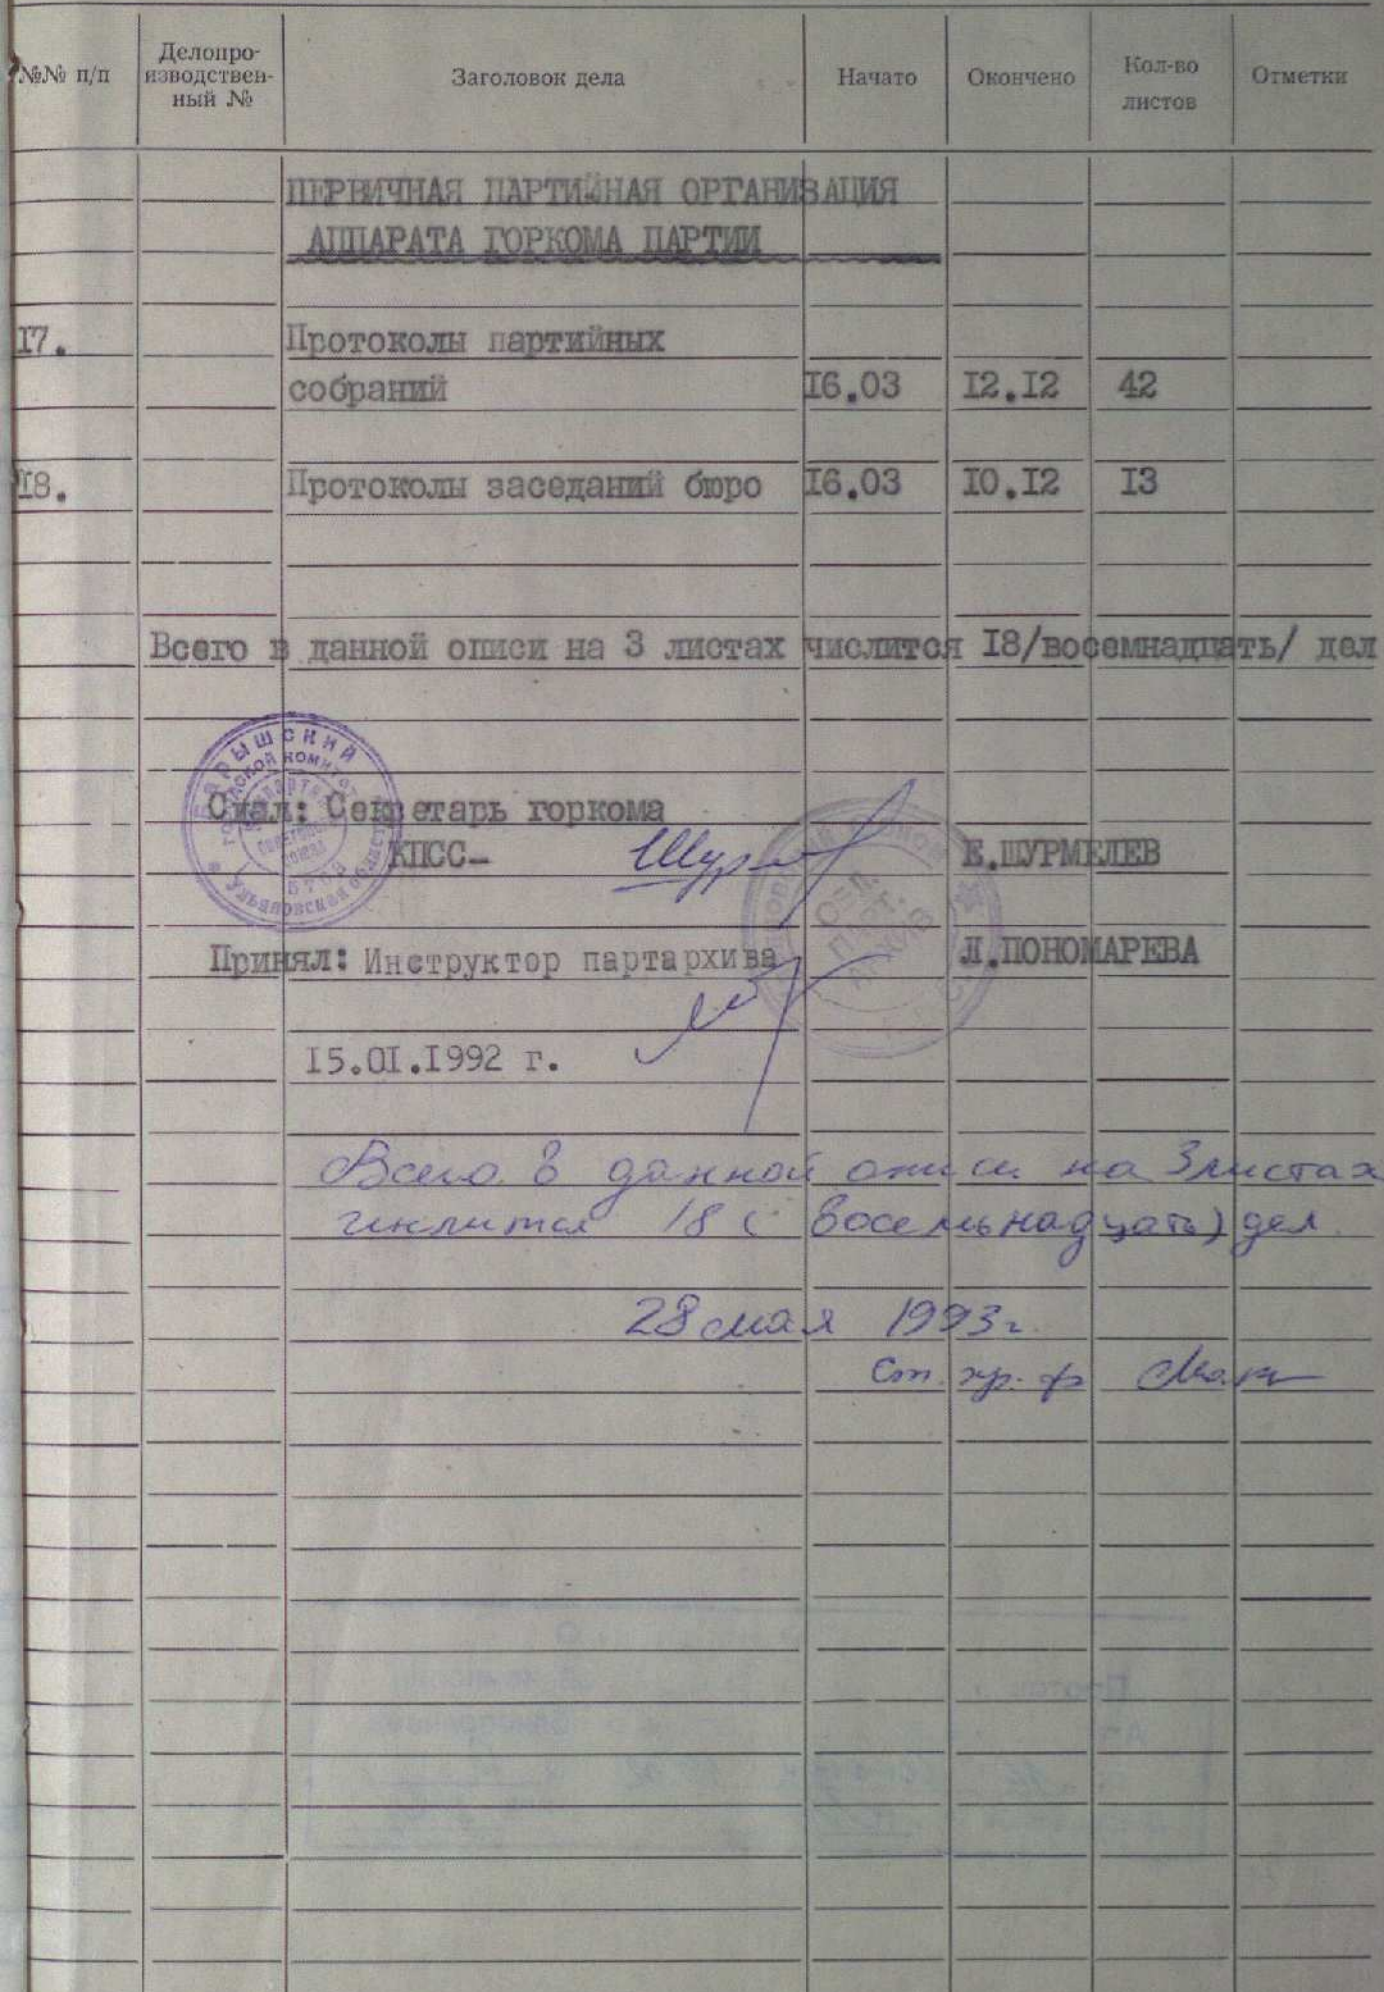 №№ п/п Делопро-изводствен-ный № Заголовок дела Начато Окончено Кол-во листов Отметки
ПЕРВИЧНАЯ ПАРТИЙНАЯ ОРГАНИЗАЦИЯ
АППАРАТА ГОРКОМА ПАРТИИ
17. Протоколы партийных
собраний 16.03 12.12 42
18. Протоколы заседаний бюро 16.03 10.12 13
Всего в данной описи на 3 листах числится 18/восемнадцать/ дел
БАРЫШСКИЙ
ГОРОДСКОЙ КОМИТЕТ
Ульяновская область
Сдал: Секретарь горкома
КПСС- Е.ШУРМЕЛЕВ
Принял: Инструктор партархива Л.ПОНОМАРЕВА
15.01.1992 г.
Всего в данной описи на 3 листах
числится 18 (восемьнадцать) дел
28 мая 1993г.
Ст. хр. ф